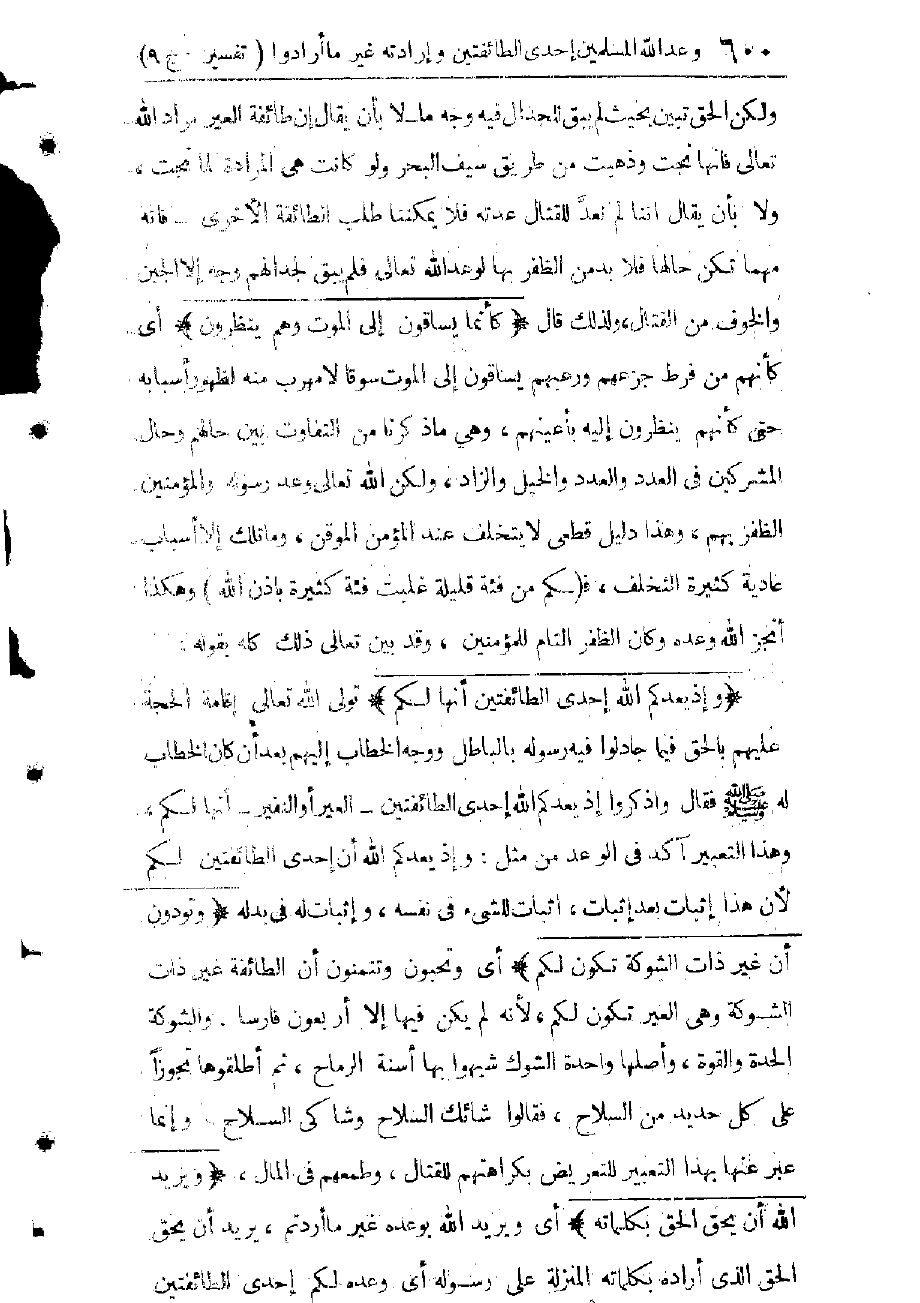 ٦٠٠ وعد الله المسلمين إحدى الطائفتين وإرادته غير ما أرادوا ( تفسير - ج ٩ )
ولكن الحق تبين بحيث لم يبق للجدال فيه وجه ما - لا بأن يقال إن طائفة العير مراد الله
تعالى فانها نجت وذهبت من طريق سيف البحر ولو كانت هى المرادة لما نجت ،
ولا بأن يقال اننا لم نعدَّ للقتال عدته فلا يمكننا طلب الطائفة الأخرى - فانه
مهما تكن حالها فلا بد من الظفر بها لوعد الله تعالى فلم يبق لجدالهم وجه إلا الجبن
والخوف من القتال، ولذلك قال ﴿ كأنما يساقون إلى الموت وهم ينظرون ﴾ أى
كأنهم من فرط جزعهم ورعبهم يساقون إلى الموت سوقا لا مهرب منه لظهور أسبابه
حتى كأنهم ينظرون إليه بأعينهم ، وهي ما ذكرنا من التفاوت بين حالهم وحال
المشركين فى العدد والعدد والخيل والزاد ، ولكن الله تعالى وعد رسوله والمؤمنين
الظفر بهم ، وهذا دليل قطعى لا يتخلف عند المؤمن الموقن ، وما تلك إلا أسباب
عادية كثيرة التخلف ، فـ(ـكم من فئة قليلة غلبت فئة كثيرة باذن الله ) وهكذا
أنجز الله وعده وكان الظفر التام للمؤمنين ، وقد بين تعالى ذلك كله بقوله :
﴿ وإذ يعدكم الله إحدى الطائفتين أنها لكم ﴾ تولى الله تعالى إقامة الحجة
عليهم بالحق فيما جادلوا فيه رسوله بالباطل ووجه الخطاب إليهم بعد أن كان الخطاب
له ﷺ فقال واذكروا إذ يعدكم الله إحدى الطائفتين - العير أو النفير - أنها لكم ،
وهذا التعبير آكد فى الوعد من مثل : وإذ يعدكم الله أن إحدى الطائفتين لكم
لأن هذا إثبات بعد إثبات ، اثبات للشىء فى نفسه ، وإثبات له فى بدله ﴿ وتودون
أن غير ذات الشوكة تكون لكم ﴾ أى وتحبون وتتمنون أن الطائفة غير ذات
الشوكة وهى العير تكون لكم ، لأنه لم يكن فيها إلا أربعون فارسا . والشوكة
الحدة والقوة ، وأصلها واحدة الشوك شبهوا بها أسنة الرماح ، ثم أطلقوها تجوزاً
على كل حديد من السلاح ، فقالوا شائك السلاح وشاكى السلاح . وإنما
عبر عنها بهذا التعبير للتعريض بكراهتهم للقتال ، وطمعهم فى المال ، ﴿ ويريد
الله أن يحق الحق بكلماته ﴾ أى ويريد الله بوعده غير ما أردتم ، يريد أن يحق
الحق الذى أراده بكلماته المنزلة على رسوله أى وعده لكم إحدى الطائفتين